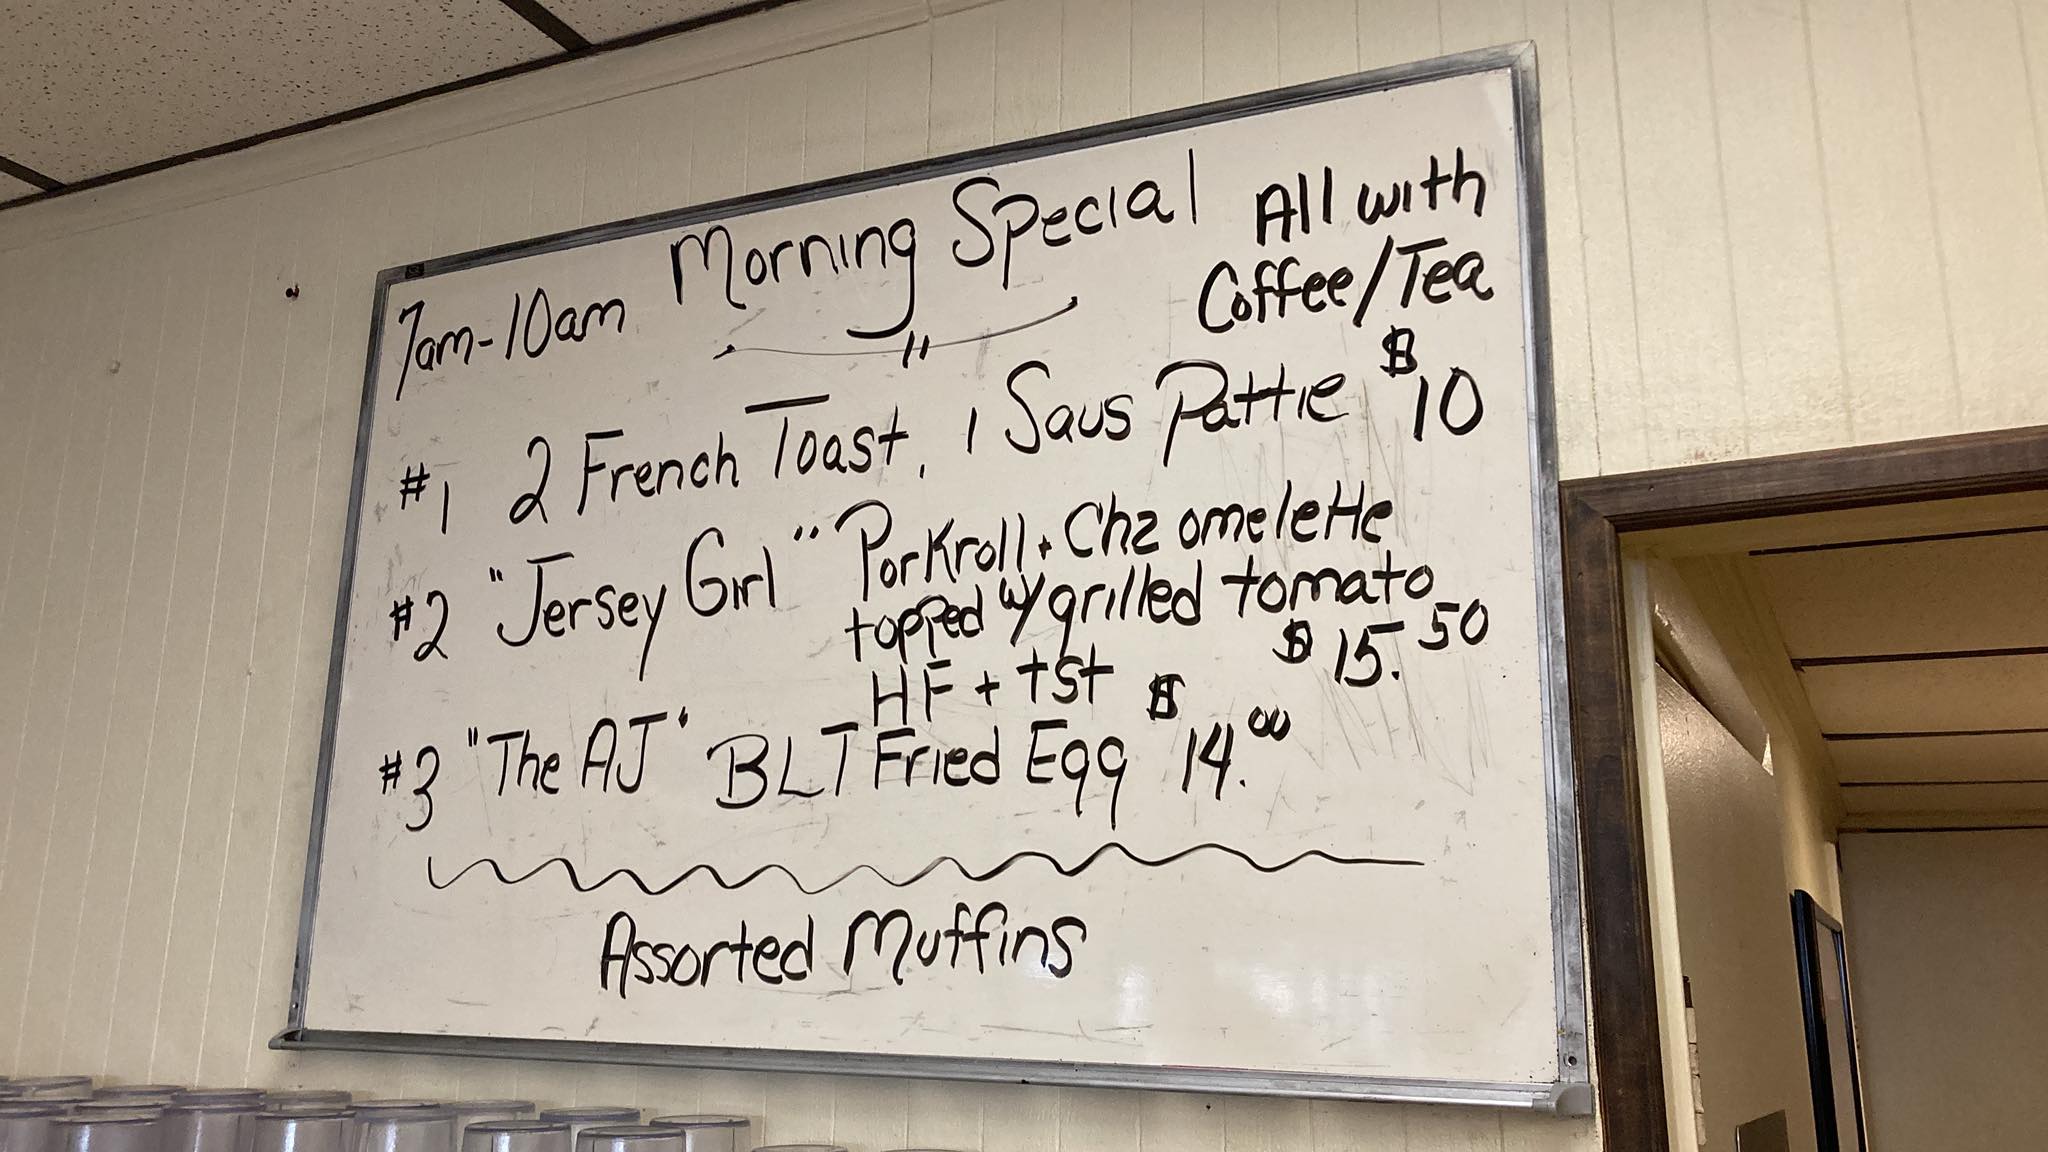 Morning Special
All with
Coffee/Tea
7am-10am
#1 2 French Toast, 1 Saus Pattie $10
#2 "Jersey Girl" Porkroll + Chz omelette
topped w/grilled tomato
HF + tst $15.50
#3 "The AJ" BLT Fried Egg $14.00
Assorted Muffins